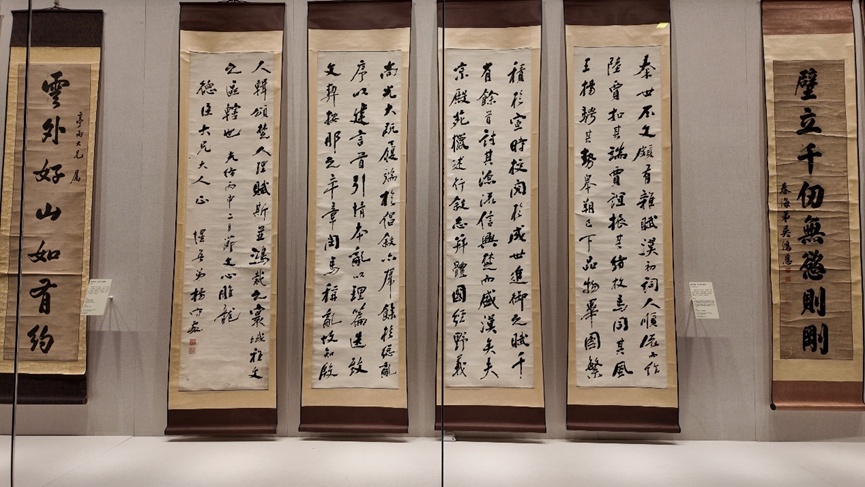 壁立千仞無慾則剛
春海弟吳鴻恩
秦世不文頗有雜賦漢初詞人順流而作
陸賈扣其端賈誼振其緒枚馬同其風
王揚騁其勢皋朔已下品物畢圖繁
積於宣時校閱於成世進御之賦千
有餘首討其源流信興楚而盛漢矣夫
京殿苑獵述行敘志并體國經野義
尚光大既履端於倡敘亦歸餘於總亂
序以建言首引情本亂以理篇迭致
文契按那之卒章閔馬稱亂故知殷
人輯頌楚人理賦斯並鴻裁之寰域雅文
之區轄也 光緒丙申二月節文心雕龍
德臣大兄大人正 惺吾弟楊守敬
大兄屬
雲外好山如有約